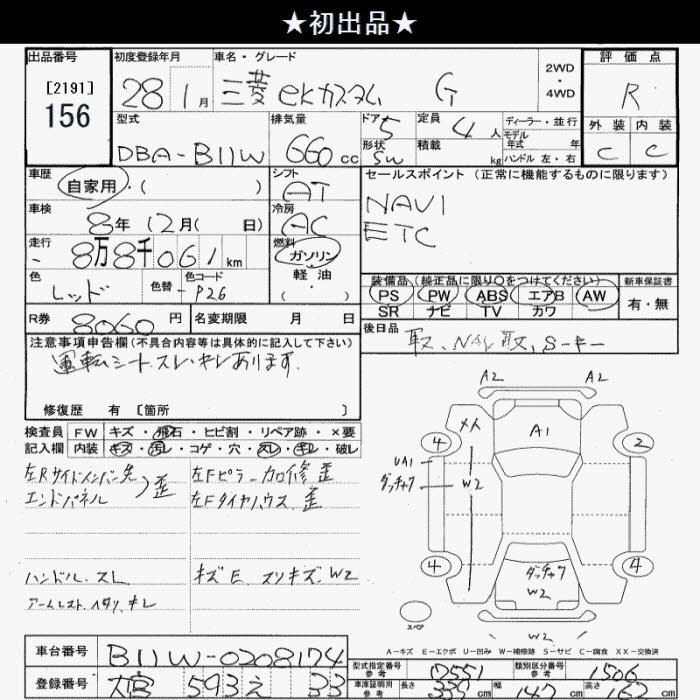 ★初出品★
出品番号 初度登録年月 車名・グレード 2WD・4WD 評価点
[2191]
156
28 1月 三菱 eKカスタム G R
型式 排気量 ドア 5 定員 4人 ディーラー・並行 外装 内装
DBA-B11W 660cc 形状 SW 積載 kg モデル年式 年 ハンドル 左・右 C C
車歴 シフト セールスポイント (正常に機能するものに限ります)
自家用・( ) AT NAVI
車検 冷房 ETC
8年 12月( 日) AC
走行 燃料
8万8千061km ガソリン
色 色替 色コード 軽油 装備品 (純正品に限り○をつけてください) 新車保証書
レッド P26 ・( ) PS PW ABS エアB AW 有・無
SR ナビ TV カワ
R券 8060円 名変期限 月 日 後日品
注意事項申告欄(不具合内容等は具体的に記入して下さい) 取、NAVI取、Sーキー
運転シート.スレ.キレあります.
修復歴 有 [箇所 ]
検査員 FW キズ・飛石・ヒビ割・リペア跡・×要
記入欄 内装 キズ・汚レ・コゲ・穴・スレ・キレ・破レ
左Rサイドメンバー先 歪 左Fピラー加修 歪
エンドパネル 左Fタイヤハウス 歪
ハンドル.スレ キズ E スリキズ.W2
アームレスト.ヘタリ.キレ
A2 A2
メハ A1
4 2
UA1
ダッチャク W2
4 4
ダッチャク
W2
スペア W2
A-キズ E-エクボ U-凹み W-補修跡 S-サビ C-腐食 XX-交換済
車台番号 B11W-0208174
型式指定番号 参考 17551 類別区分番号 参考 1506
登録番号 大宮 593 え 33
車庫証明用 参考 長さ 339cm 幅 147cm 高さ cm